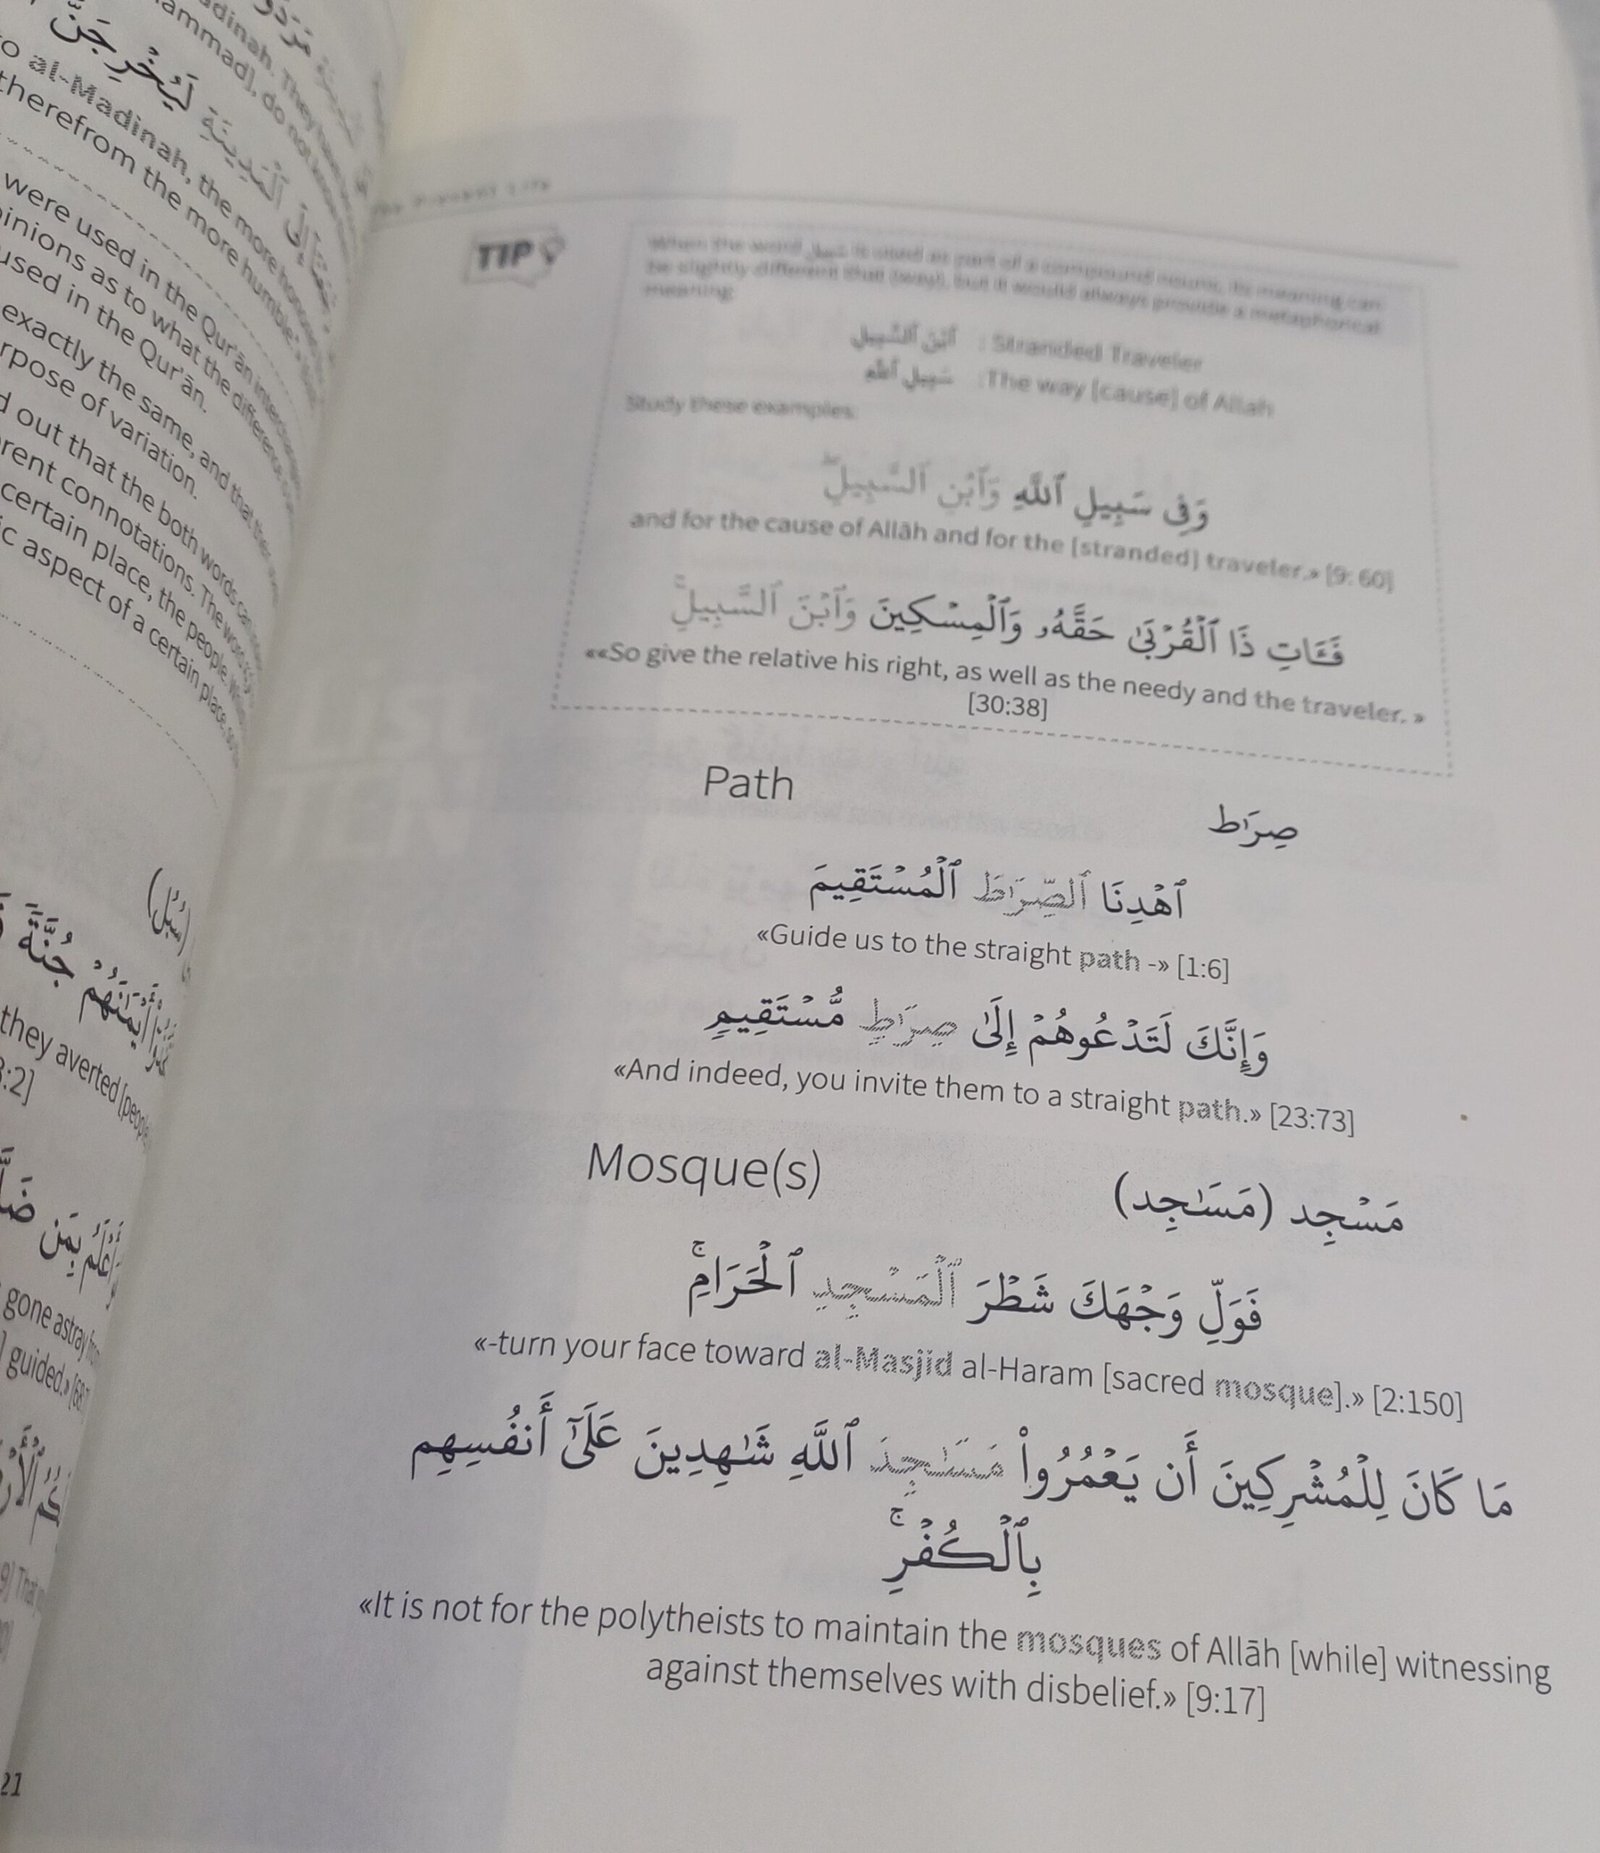 to al-Madinah, the more
therefrom the more humble.»
were used in the Qur'ān
opinions as to what the difference
used in the Qur'ān.
exactly the same, and that
purpose of variation.
out that the both words
connotations. The
certain place, the people
aspect of a certain place,
(سُبُل)
أَيْمَٰنَهُمْ جُنَّةً
they averted [people
بِمَن ضَلَّ
gone astray from
guided.» [68:
21
TIP
When the word سبيل is used as part of a compound nouns, its meaning can
be slightly different that (way), but it would always provide a metaphorical
meaning:
ٱبْنَ ٱلسَّبِيلِ : Stranded Traveler
سَبِيلِ ٱللَّهِ :The way [cause] of Allah
Study these examples:
وَفِى سَبِيلِ ٱللَّهِ وَٱبْنِ ٱلسَّبِيلِۖ
and for the cause of Allāh and for the [stranded] traveler.» [9: 60]
فَـَٔاتِ ذَا ٱلْقُرْبَىٰ حَقَّهُۥ وَٱلْمِسْكِينَ وَٱبْنَ ٱلسَّبِيلِۚ
««So give the relative his right, as well as the needy and the traveler. »
[30:38]
Path
صِرَٰط
ٱهْدِنَا ٱلصِّرَٰطَ ٱلْمُسْتَقِيمَ
«Guide us to the straight path -» [1:6]
وَإِنَّكَ لَتَدْعُوهُمْ إِلَىٰ صِرَٰطٍ مُّسْتَقِيمٍ
«And indeed, you invite them to a straight path.» [23:73]
Mosque(s)
مَسْجِد (مَسَٰجِد)
فَوَلِّ وَجْهَكَ شَطْرَ ٱلْمَسْجِدِ ٱلْحَرَامِۚ
«-turn your face toward al-Masjid al-Haram [sacred mosque].» [2:150]
مَا كَانَ لِلْمُشْرِكِينَ أَن يَعْمُرُوا۟ مَسَٰجِدَ ٱللَّهِ شَٰهِدِينَ عَلَىٰٓ أَنفُسِهِم
بِٱلْكُفْرِۚ
«It is not for the polytheists to maintain the mosques of Allāh [while] witnessing
against themselves with disbelief.» [9:17]